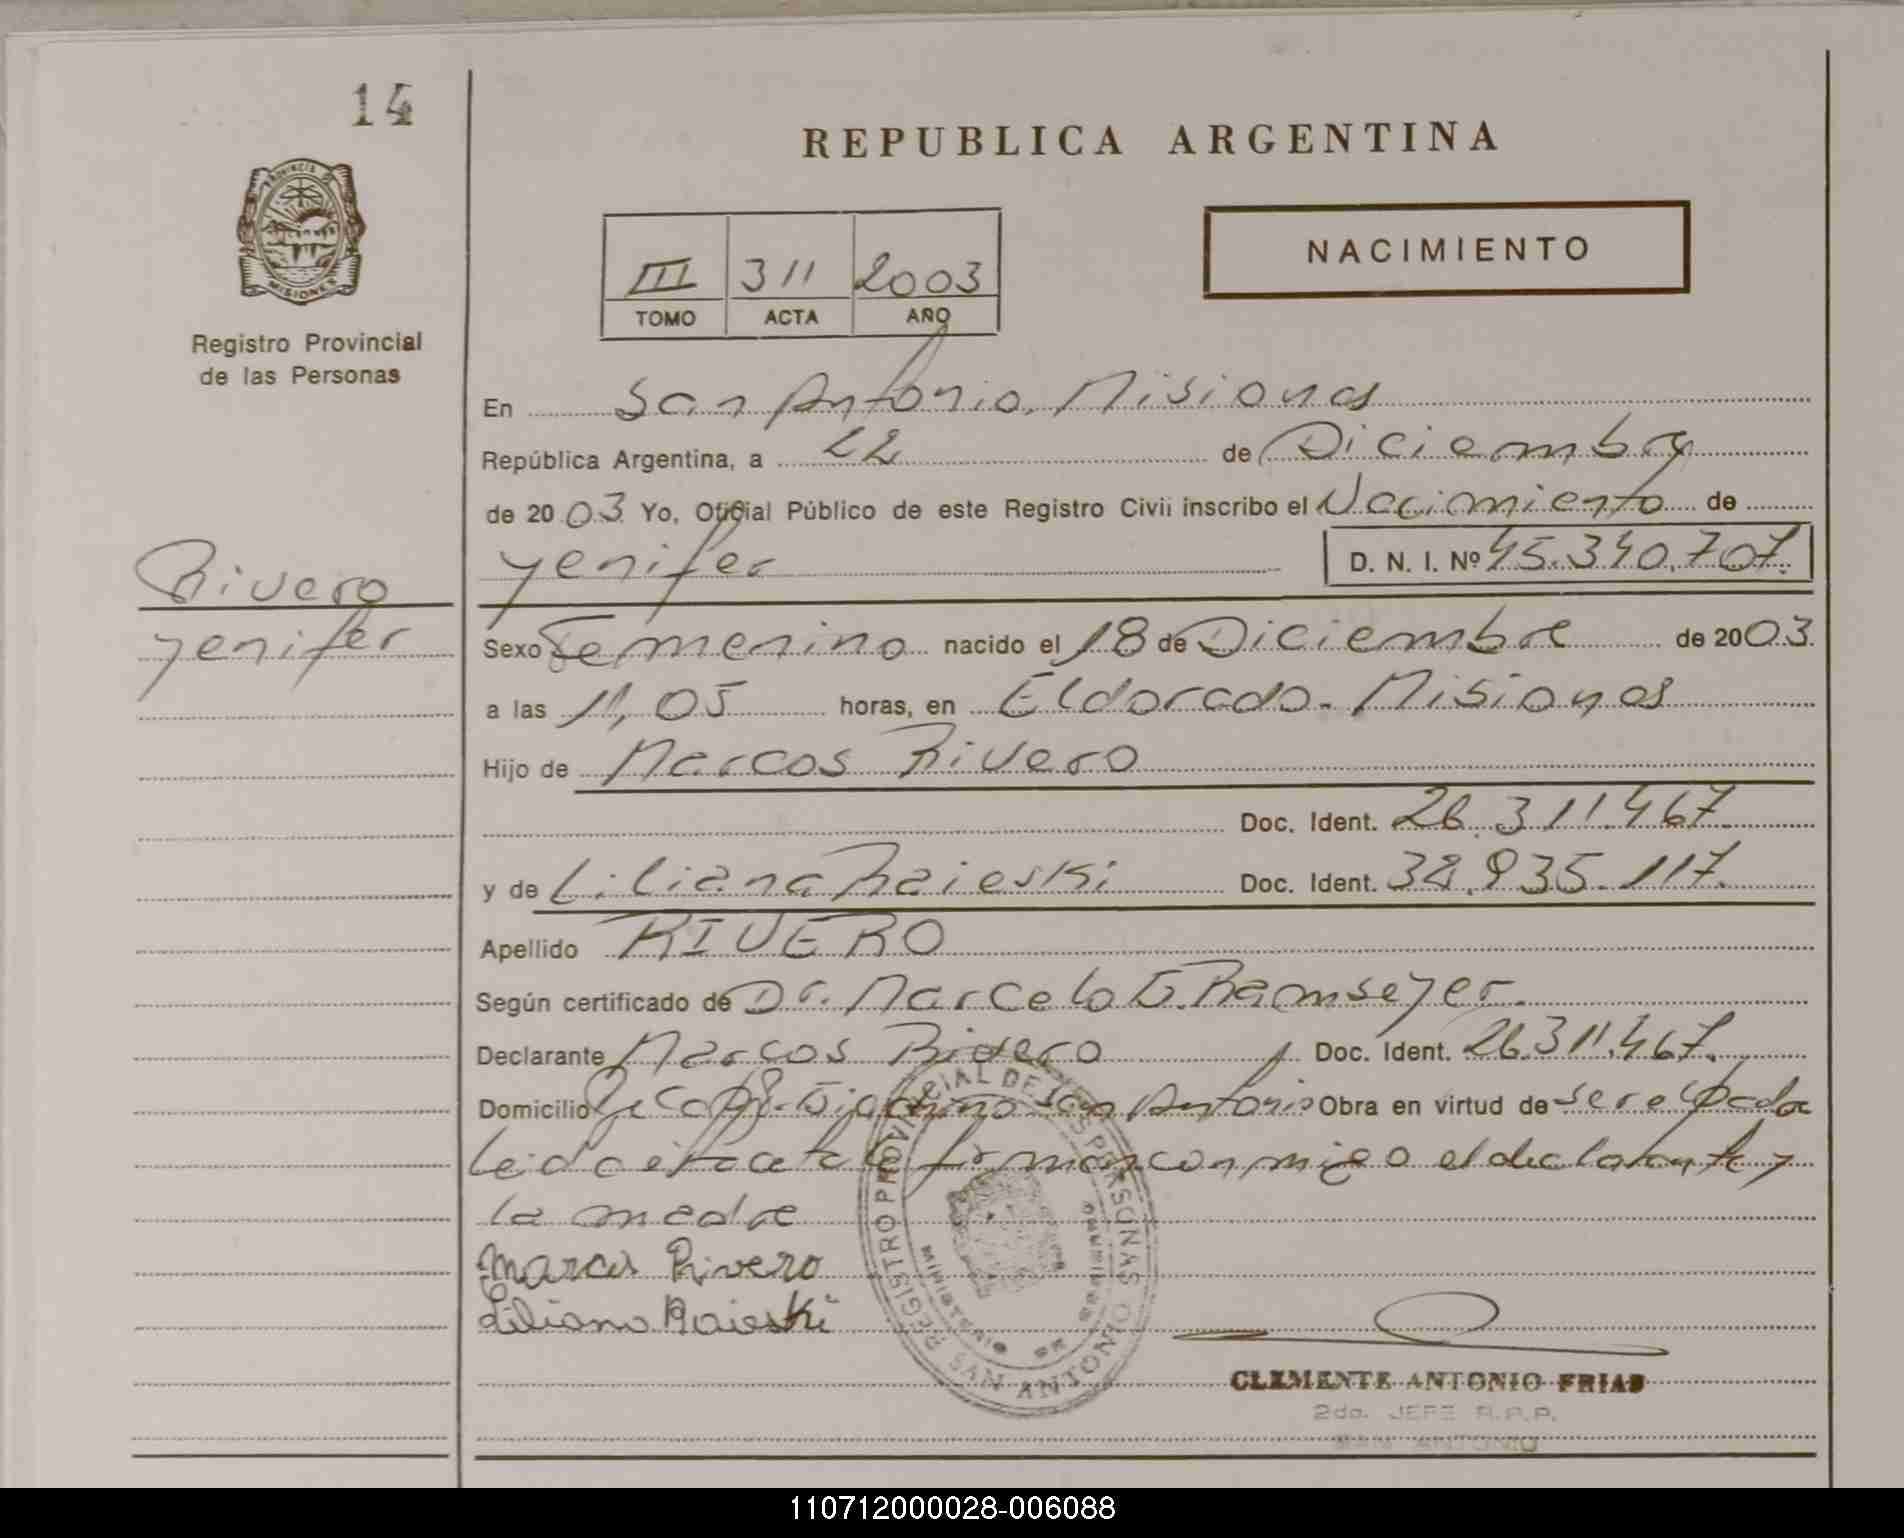 14
REPUBLICA ARGENTINA
PROVINCIA DE
MISIONES
Registro Provincial
de las Personas
III 311 2003
TOMO ACTA AÑO
NACIMIENTO
En San Antonio, Misiones
República Argentina, a 22 de Diciembre
de 2003 Yo, Oficial Público de este Registro Civil inscribo el Nacimiento de
Rivero
yenifer
yenifer D. N. I. Nº 45.340.707.
Sexo Femenino nacido el 18 de Diciembre de 2003.
a las 11,05 horas, en Eldorado. Misiones
Hijo de Marcos Rivero
Doc. Ident. 26.311.467
y de Liliana Raieski Doc. Ident. 38.935.117.
Apellido RIVERO
Según certificado de Dr. Marcelo G. Ramseyer.
Declarante Marcos Rivero Doc. Ident. 26.311.467.
Domicilio San Antonio Obra en virtud de ser el padre
Leida esta acta la firman conmigo el declarante y
la madre
Marcos Rivero
Liliana Raieski
REGISTRO PROVINCIAL DE LAS PERSONAS
SAN ANTONIO
MINISTERIO DE GOBIERNO
MISIONES
CLEMENTE ANTONIO FRIAS
2do. JEFE R.P.P.
SAN ANTONIO
110712000028-006088